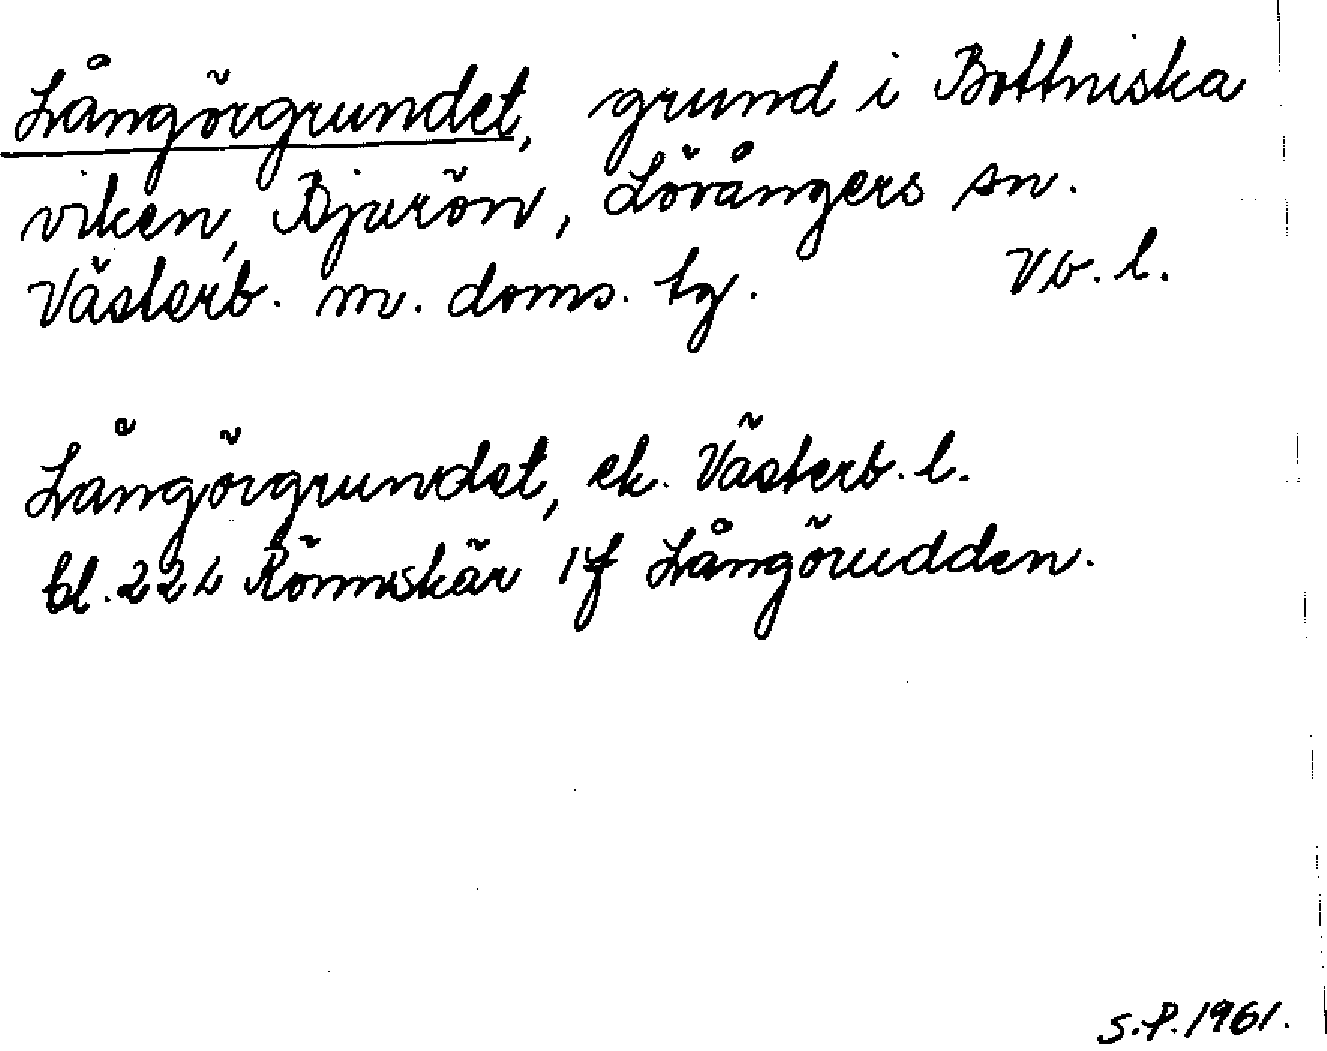 Långörgrundet, grund i Bottniska
viken, Bjurön, Lövångers sn.
Västerb. m. doms. tg. Vb. l.
Långörgrundet, ek. Västerb. l.
bl. 224 Rönnskär 1f Långörudden.
S.P. 1961.